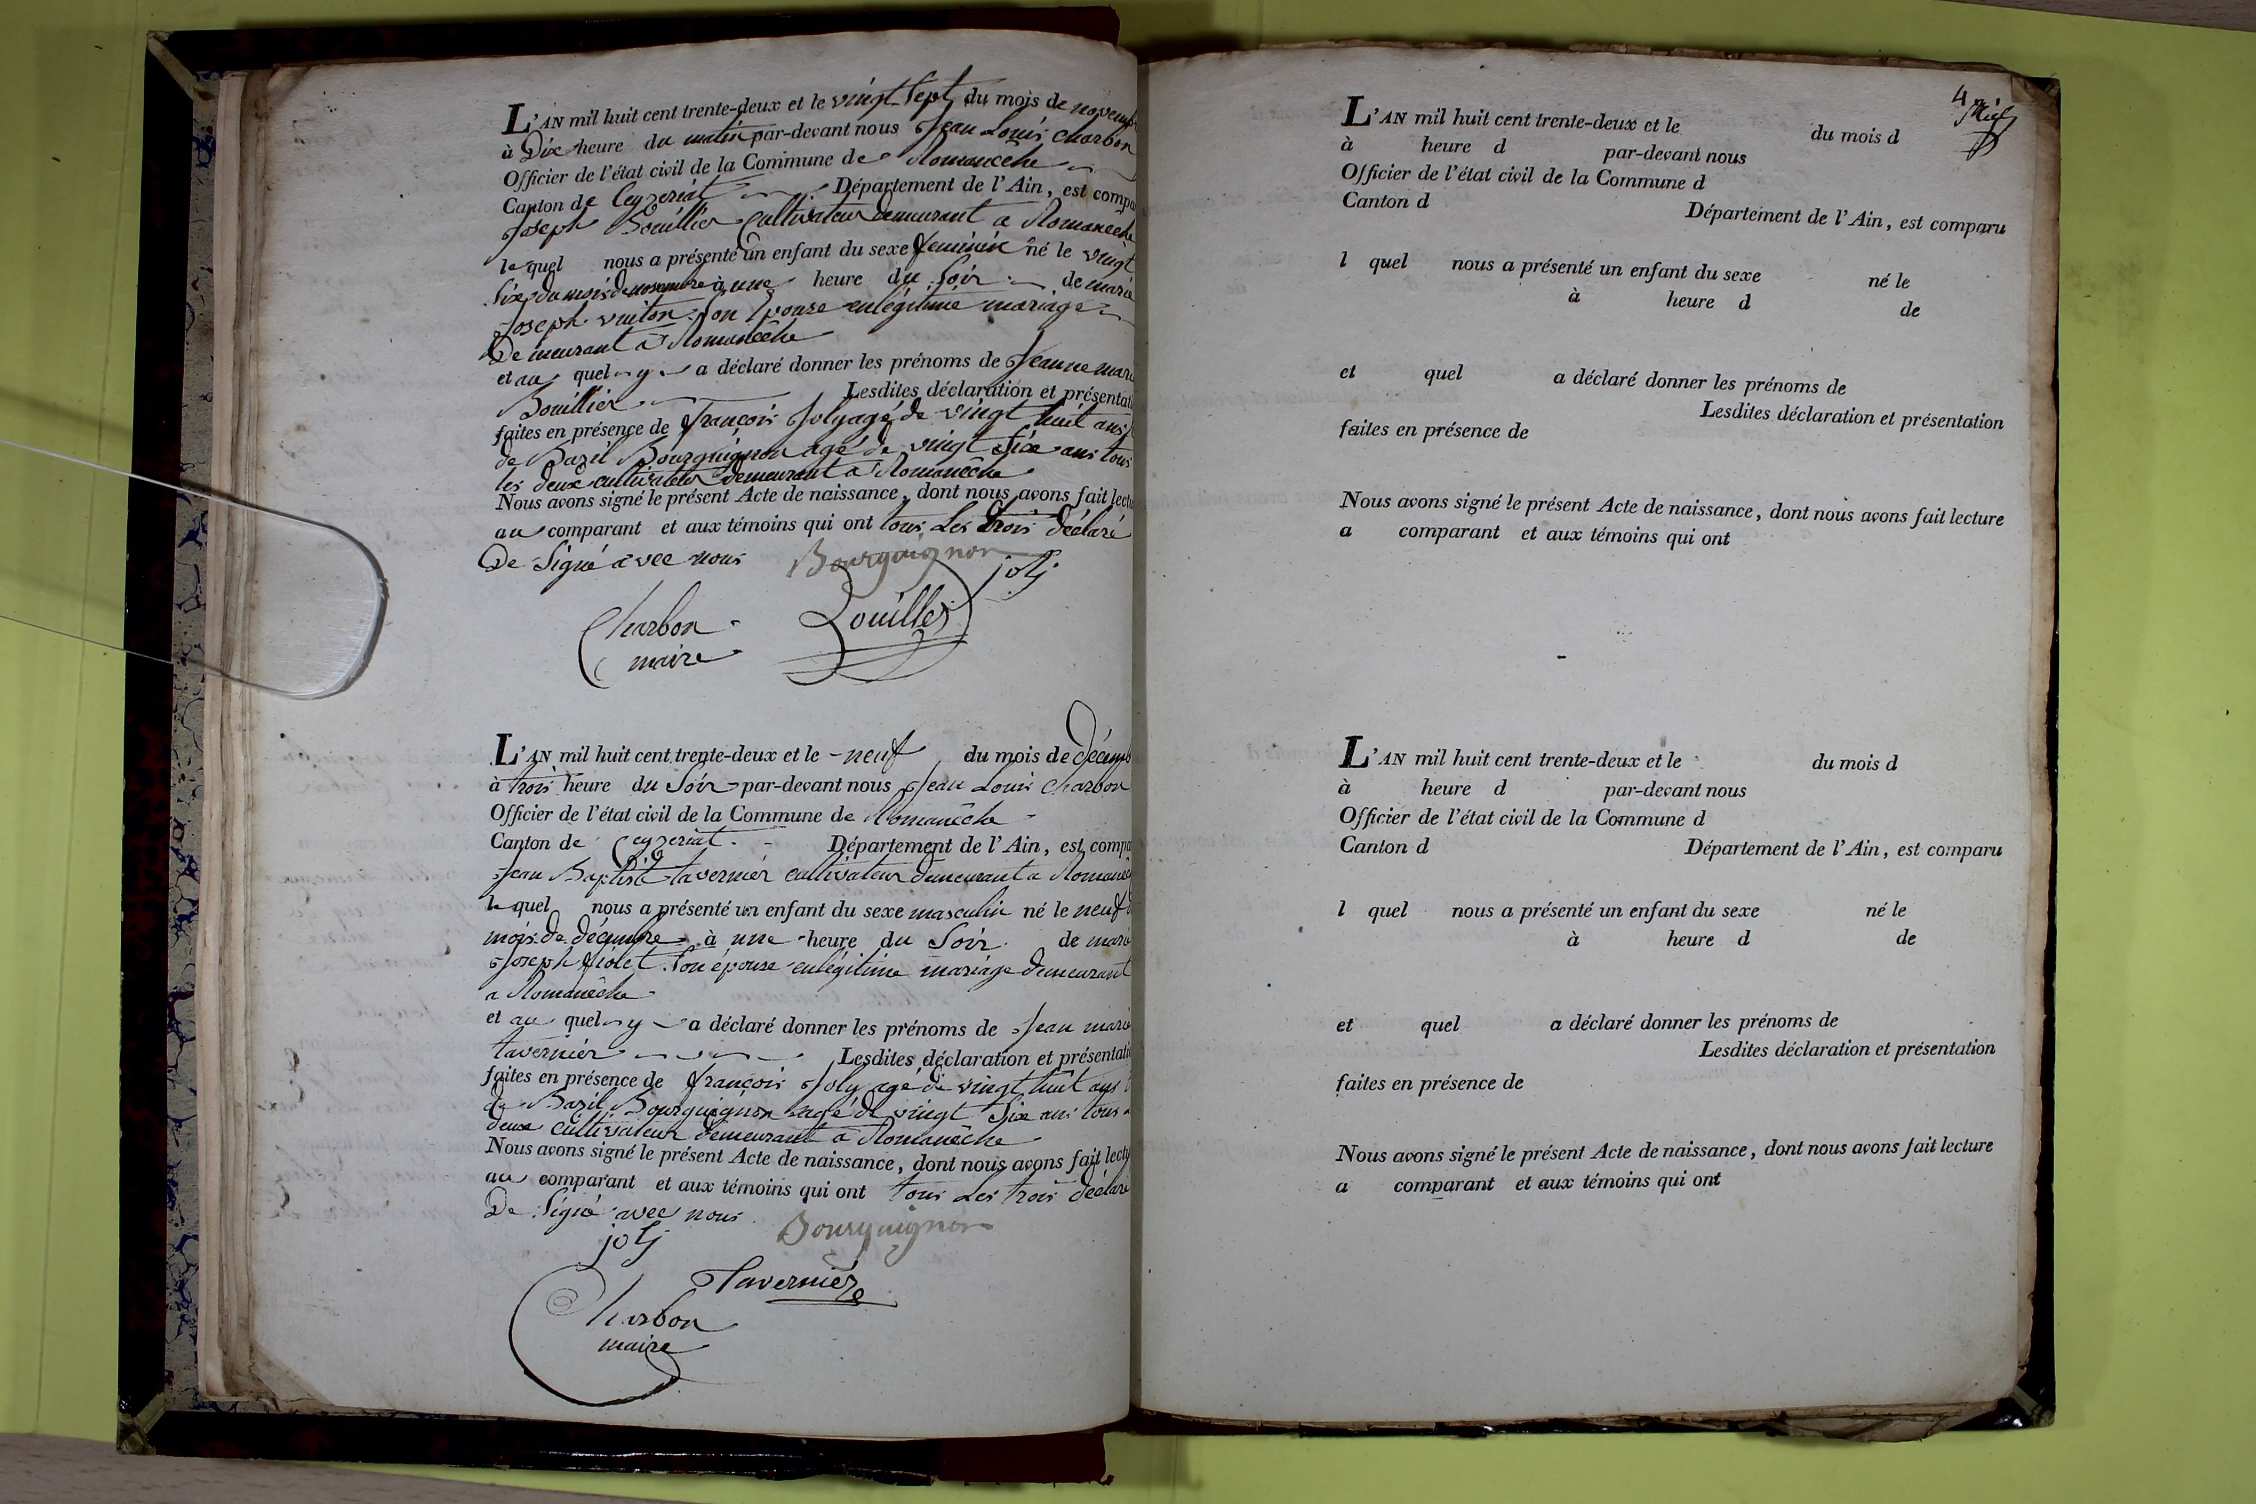 L'AN mil huit cent trente-deux et le vingt sept du mois de novemb
à Dix heure du matin par-devant nous Jean Louis Charbon
Officier de l'état civil de la Commune de Romanêche
Canton de Ceyzeriat Département de l'Ain, est compa
Joseph Bouillier Cultivateur demeurant a Romanêche
le quel nous a présenté un enfant du sexe feminin né le vingt
Six du mois de novembre à une heure du Soir de marie
Joseph vuiton Son Epouze en légitime mariage
Demeurant a Romanêche
et au quel y a déclaré donner les prénoms de Jeanne mari
Bouillier Lesdites déclaration et présentati
faites en présence de françois Joly agé de vingt huit ans
de Bazil Bourguignon agé de vingt Six ans tous
les deux cultivateur demeurant a Romanêche
Nous avons signé le présent Acte de naissance, dont nous avons fait lectu
au comparant et aux témoins qui ont tous Les trois déclaré
De Signé avec nous Bourguignon
joly
Charbon Bouiller
maire
L'AN mil huit cent trente-deux et le neuf du mois de décemb
à trois heure du Soir par-devant nous Jean Louis Charbon
Officier de l'état civil de la Commune de Romanêche
Canton de Ceyzeriat Département de l'Ain, est compa
Jean Baptist tavernier cultivateur demeurant a Romanê
le quel nous a présenté un enfant du sexe masculin né le neuf
mois de décembre à une heure du Soir de marie
Joseph fiolet Son épouse en légitime mariage demeurant
a Romanêche
et au quel y a déclaré donner les prénoms de Jean marie
tavernier Lesdites déclaration et présentati
faites en présence de françois Joly agé de vingt huit ans
de Bazil Bourguignon agé de vingt Six ans tous
deux cultivateur demeurant a Romanêche
Nous avons signé le présent Acte de naissance, dont nous avons fait lectu
au comparant et aux témoins qui ont tous Les trois déclaré
De Signé avec nous Bourguignon
joly
Tavernier
Charbon
maire
4
L'AN mil huit cent trente-deux et le du mois d
à heure d par-devant nous
Officier de l'état civil de la Commune d
Canton d Département de l'Ain, est comparu
l quel nous a présenté un enfant du sexe né le
à heure d de
et quel a déclaré donner les prénoms de
Lesdites déclaration et présentation
faites en présence de
Nous avons signé le présent Acte de naissance, dont nous avons fait lecture
a comparant et aux témoins qui ont
L'AN mil huit cent trente-deux et le du mois d
à heure d par-devant nous
Officier de l'état civil de la Commune d
Canton d Département de l'Ain, est comparu
l quel nous a présenté un enfant du sexe né le
à heure d de
et quel a déclaré donner les prénoms de
Lesdites déclaration et présentation
faites en présence de
Nous avons signé le présent Acte de naissance, dont nous avons fait lecture
a comparant et aux témoins qui ont